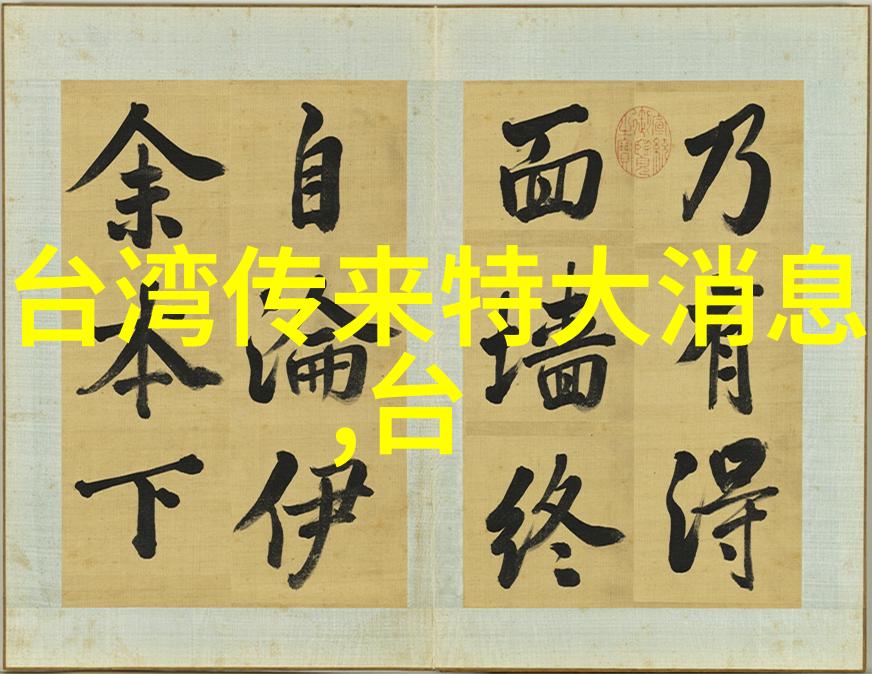 台湾传来特大消息
,台
乃有得
面墙终
自淪伊
余本下